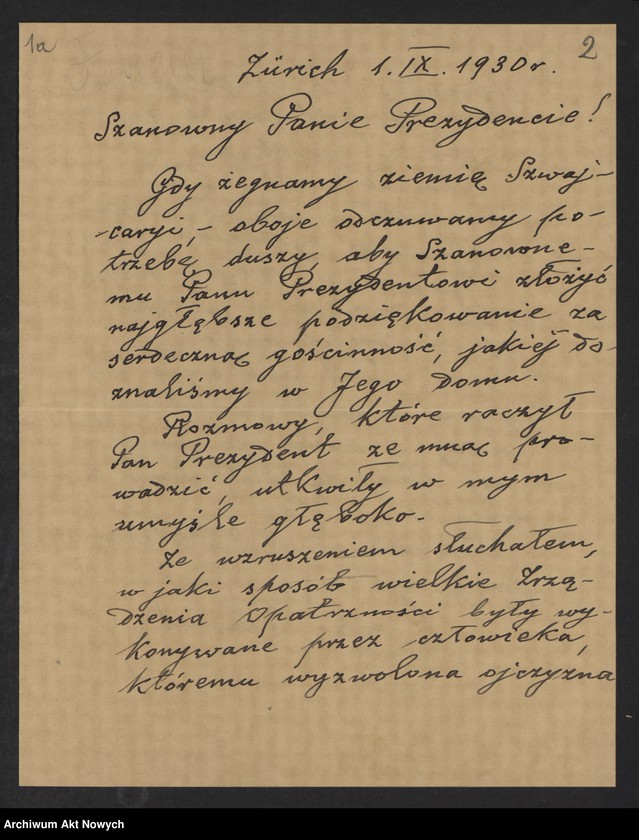 1a
2
Zürich 1. IX. 1930 r.
Szanowny Panie Prezydencie!
Gdy żegnamy ziemię Szwaj-
-caryi, - oboje odczuwamy po-
trzebę duszy, aby Szanowne-
mu Panu Prezydentowi złożyć
najgłębsze podziękowanie za
serdeczną gościnność, jakiej do-
znaliśmy w Jego domu.
Rozmowy, które raczył
Pan Prezydent ze mną pro-
wadzić, utkwiły w mym
umyśle głęboko.
Ze wzruszeniem słuchałem,
w jaki sposób wielkie Zrzą-
dzenia Opatrzności były wy-
konywane przez człowieka,
któremu wyzwolona ojczyzna
Archiwum Akt Nowych